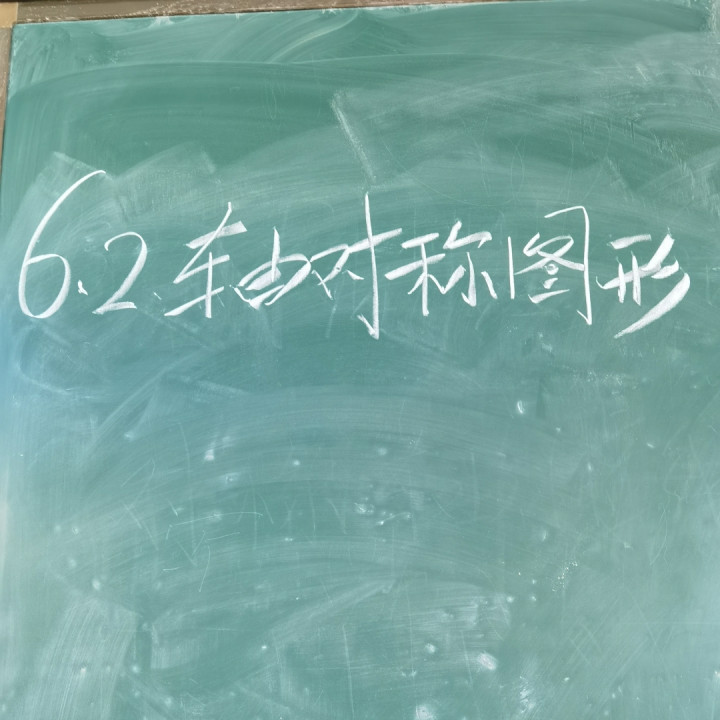 6.2 轴对称图形